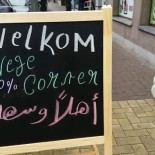 Welkom
Vege
0% Corner
أهلاً وسهلاً